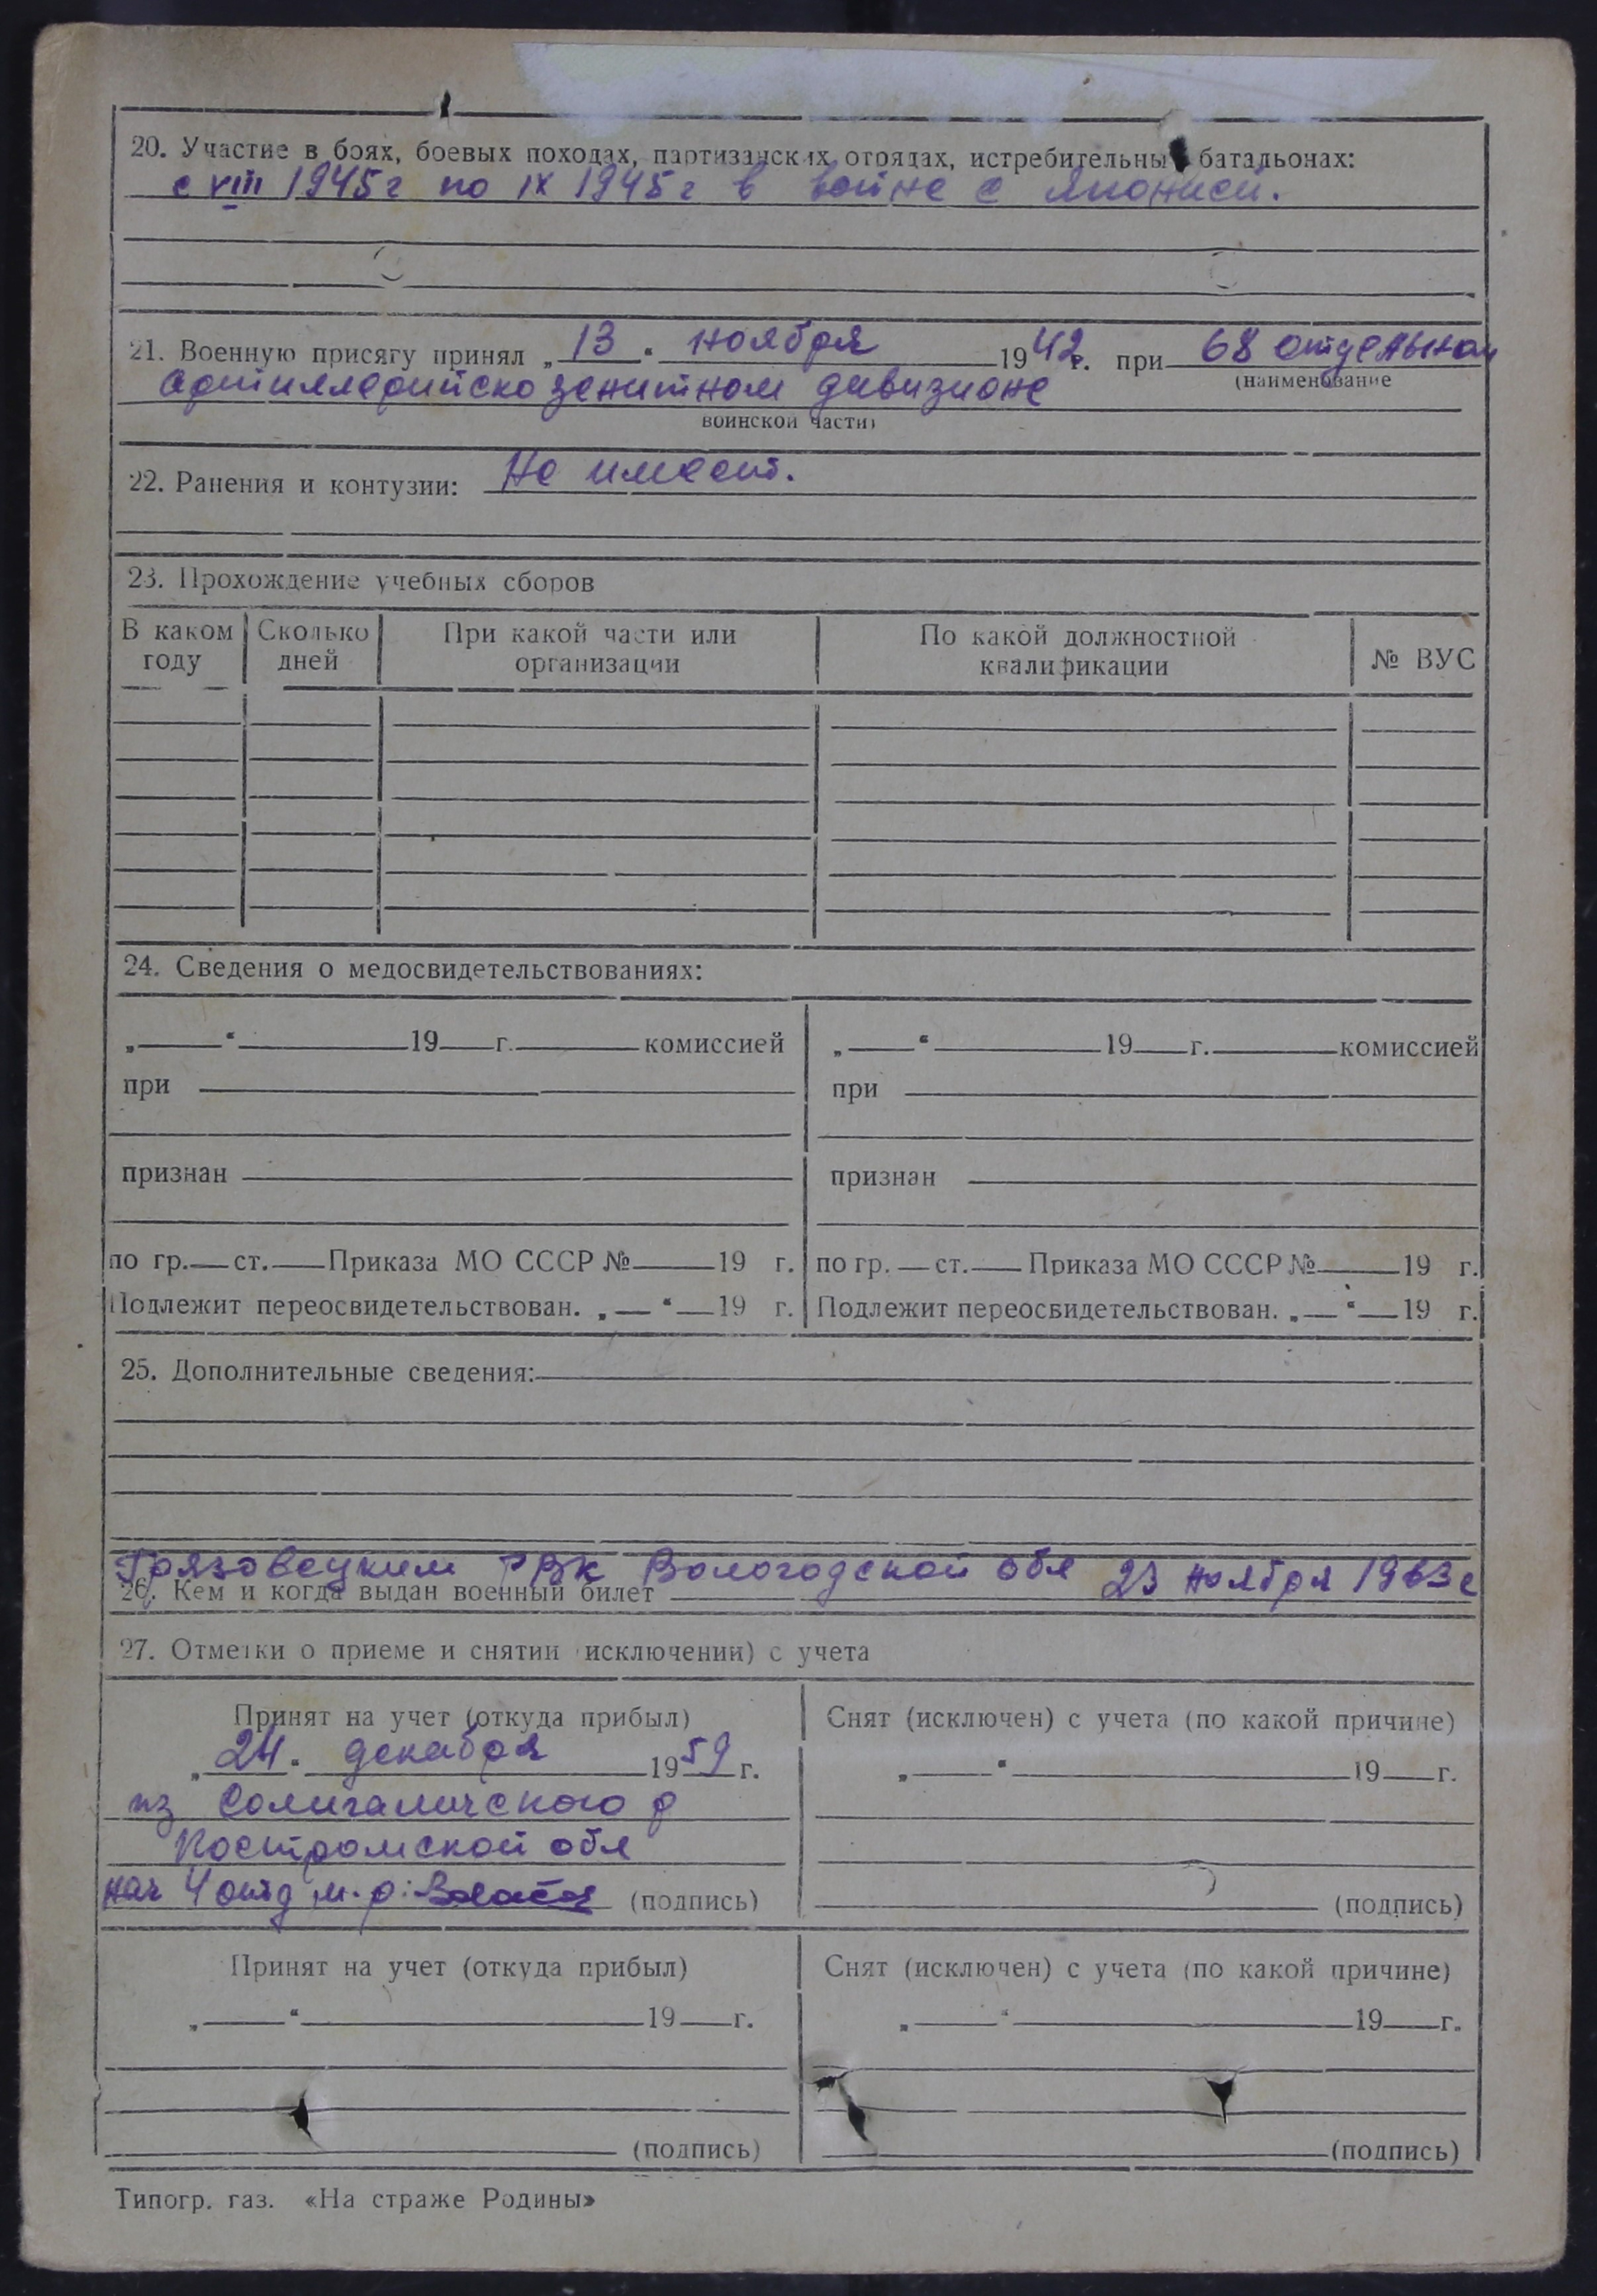 20. Участие в боях, боевых походах, партизанских отрядах, истребительны батальонах:
с VIII 1945 г по IX 1945 г в войне с Японией.
21. Военную присягу принял „ 13 “ ноября 1942 г. при 68 отдельном
(наименование
артиллерийско зенитном дивизионе
воинской части)
22. Ранения и контузии: Не имеет.
23. Прохождение учебных сборов
В каком году Сколько дней При какой части или организации По какой должностной квалификации № ВУС
24. Сведения о медосвидетельствованиях:
„ “ 19 г. комиссией „ “ 19 г. комиссией
при при
признан признан
по гр. ст. Приказа МО СССР № 19 г. по гр. ст. Приказа МО СССР № 19 г.
Подлежит переосвидетельствован. „ “ 19 г. Подлежит переосвидетельствован. „ “ 19 г.
25. Дополнительные сведения:
Грязовецким РВК Вологодской обл 23 ноября 1963 г
26. Кем и когда выдан военный билет
27. Отметки о приеме и снятии (исключении) с учета
Принят на учет (откуда прибыл) Снят (исключен) с учета (по какой причине)
„ 24 “ декабря 1959 г. „ “ 19 г.
из Солигаличского р
Костромской обл
нач 4 отд м-р: (подпись) (подпись)
Принят на учет (откуда прибыл) Снят (исключен) с учета (по какой причине)
„ “ 19 г. „ “ 19 г.
(подпись) (подпись)
Типогр. газ. «На страже Родины»